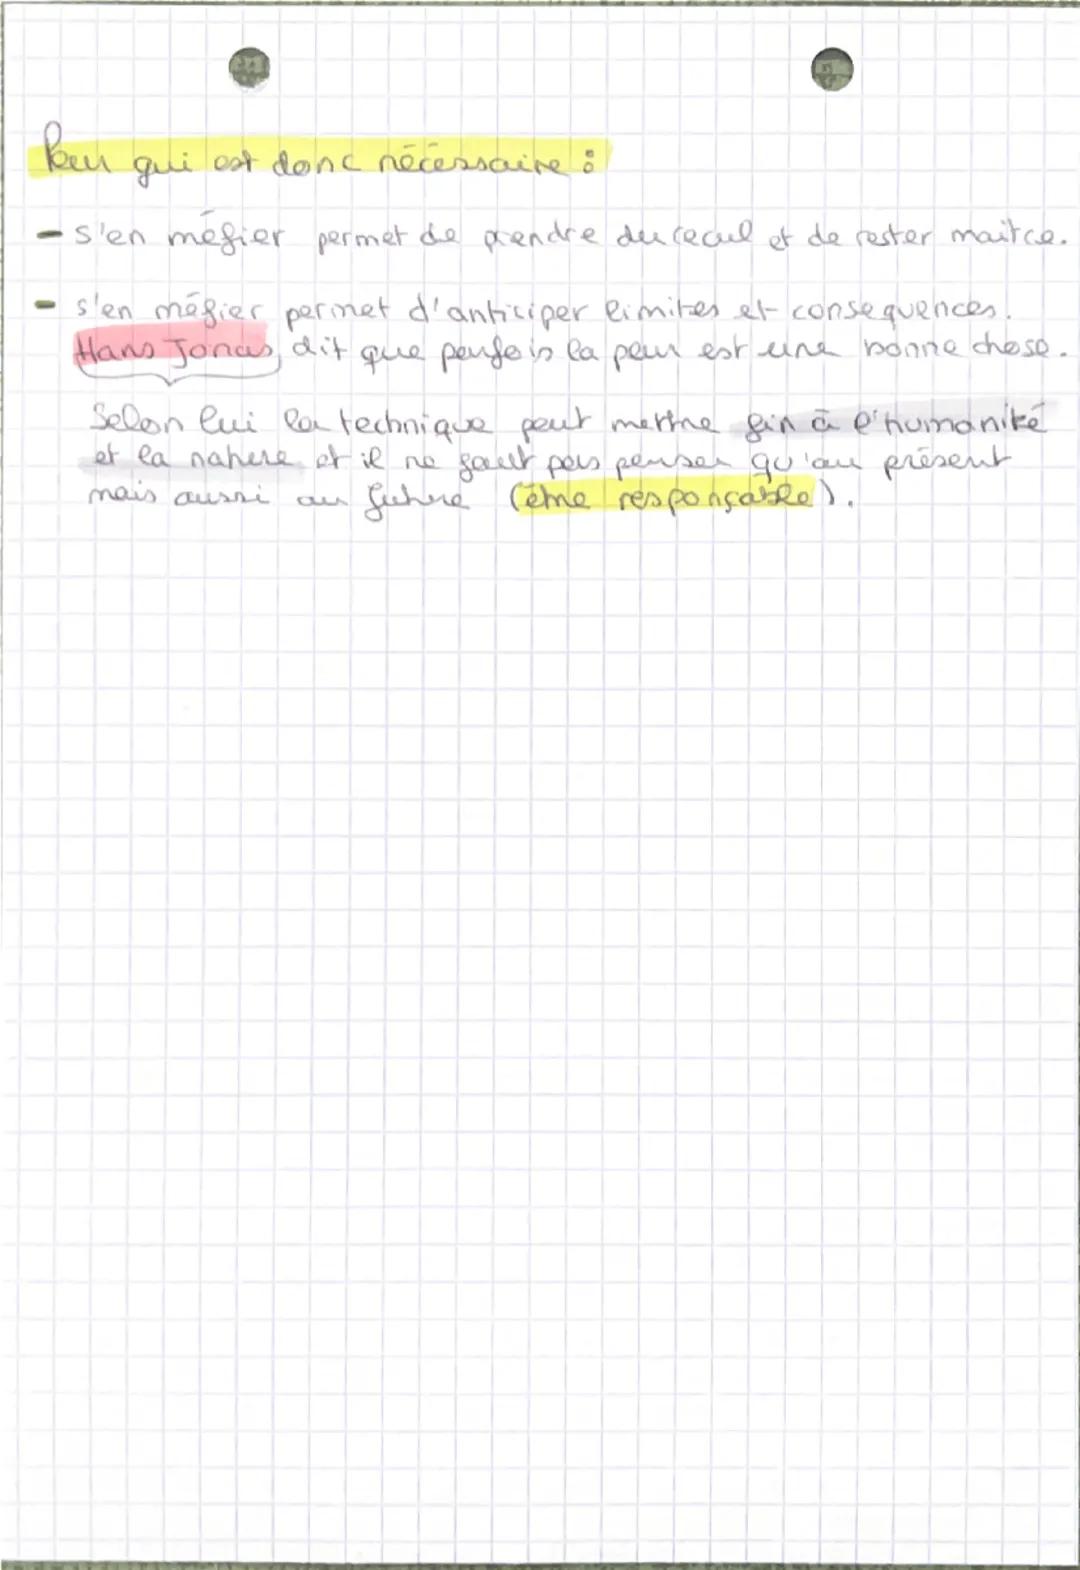 Peur qui est donc nécessaire :
- s'en méfier permet de prendre du recul et de rester maitre.
- s'en méfier permet d'anticiper limites et consequences.
Hans Jonas dit que parfois la peur est une bonne chose.
Selon lui la technique peut mettre fin à l'humanité
et la nature et il ne faut pas penser qu'au présent
mais aussi au future (être responçable).